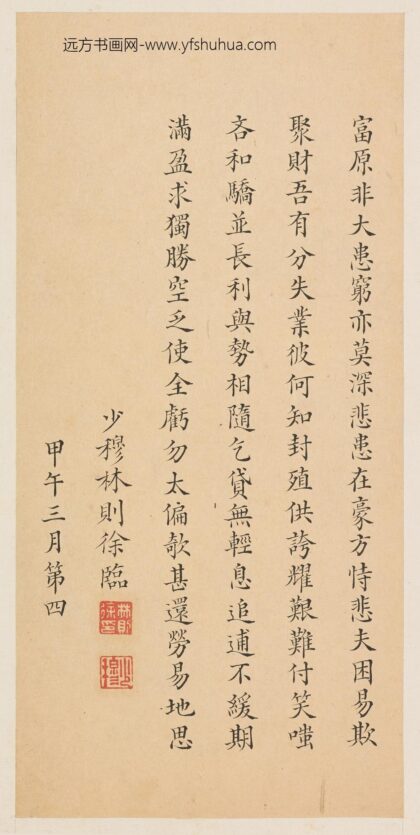 远方书画网-www.yfshuhua.com
富原非大患窮亦莫深悲患在豪方恃悲夫困易欺
聚財吾有分失業彼何知封殖供誇耀艱難付笑嗤
吝和驕並長利與勢相隨乞貸無輕息追逋不緩期
滿盈求獨勝空乏使全虧勿太偏欹甚還勞易地思
少穆林則徐臨
甲午三月第四
林則徐印
少穆